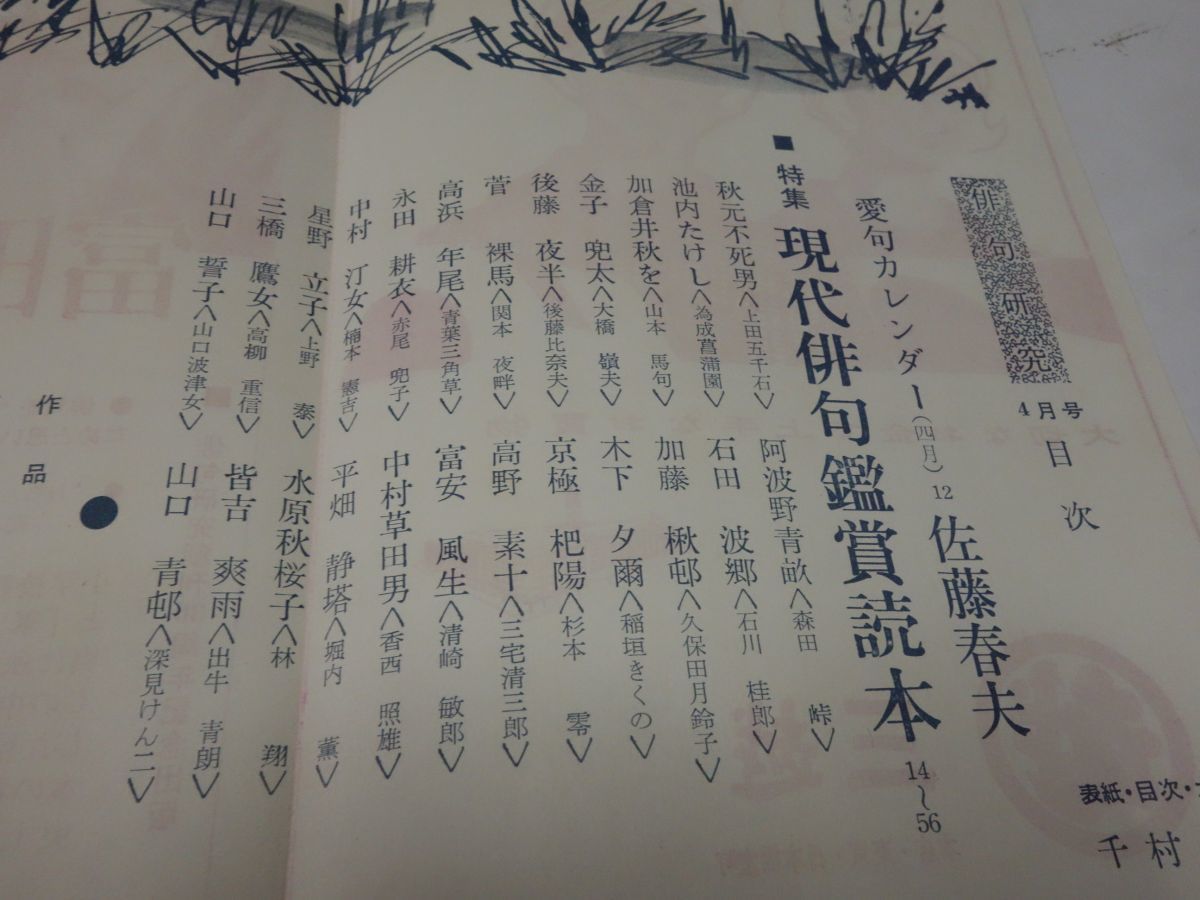 俳句研究
4月号
目次
愛句カレンダー(四月) 12 佐藤春夫
■特集 現代俳句鑑賞読本 14〜56
秋元不死男〈上田五千石〉 阿波野青畝〈森田 峠〉
池内たけし〈為成菖蒲園〉 石田 波郷〈石川 桂郎〉
加倉井秋を〈山本 馬句〉 加藤 楸邨〈久保田月鈴子〉
金子 兜太〈大橋 嶺夫〉 木下 夕爾〈稲垣きくの〉
後藤 夜半〈後藤比奈夫〉 京極 杞陽〈杉本 零〉
菅 裸馬〈関本 夜畔〉 高野 素十〈三宅清三郎〉
高浜 年尾〈青葉三角草〉 富安 風生〈清崎 敏郎〉
永田 耕衣〈赤尾 兜子〉 中村草田男〈香西 照雄〉
中村 汀女〈楠本 憲吉〉 平畑 静塔〈堀内 薫〉
星野 立子〈上野 泰〉 水原秋桜子〈林 翔〉
三橋 鷹女〈高柳 重信〉 皆吉 爽雨〈出牛 青朗〉
山口 誓子〈山口波津女〉 山口 青邨〈深見けん二〉
●
作品
表紙・目次・
千村